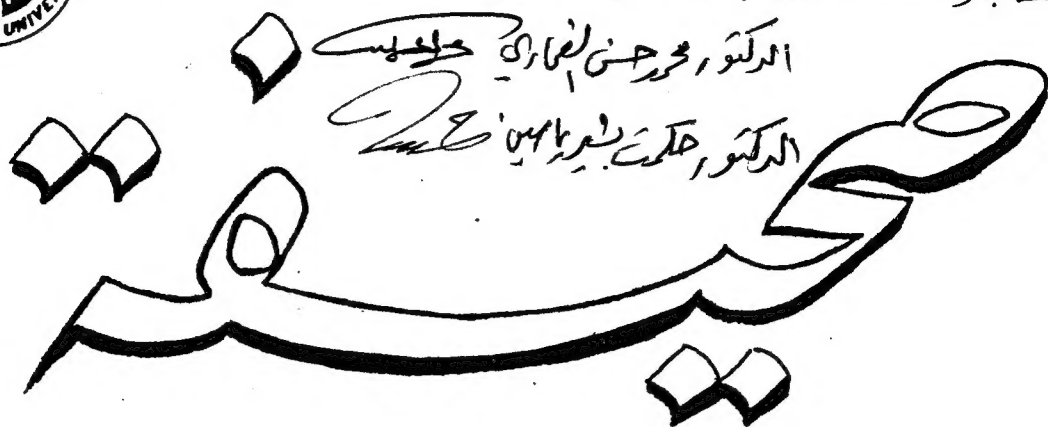 UNIVE
الدكتور محمد حسن الغماري
الدكتور حكمت بشير ياسين
صحيفة